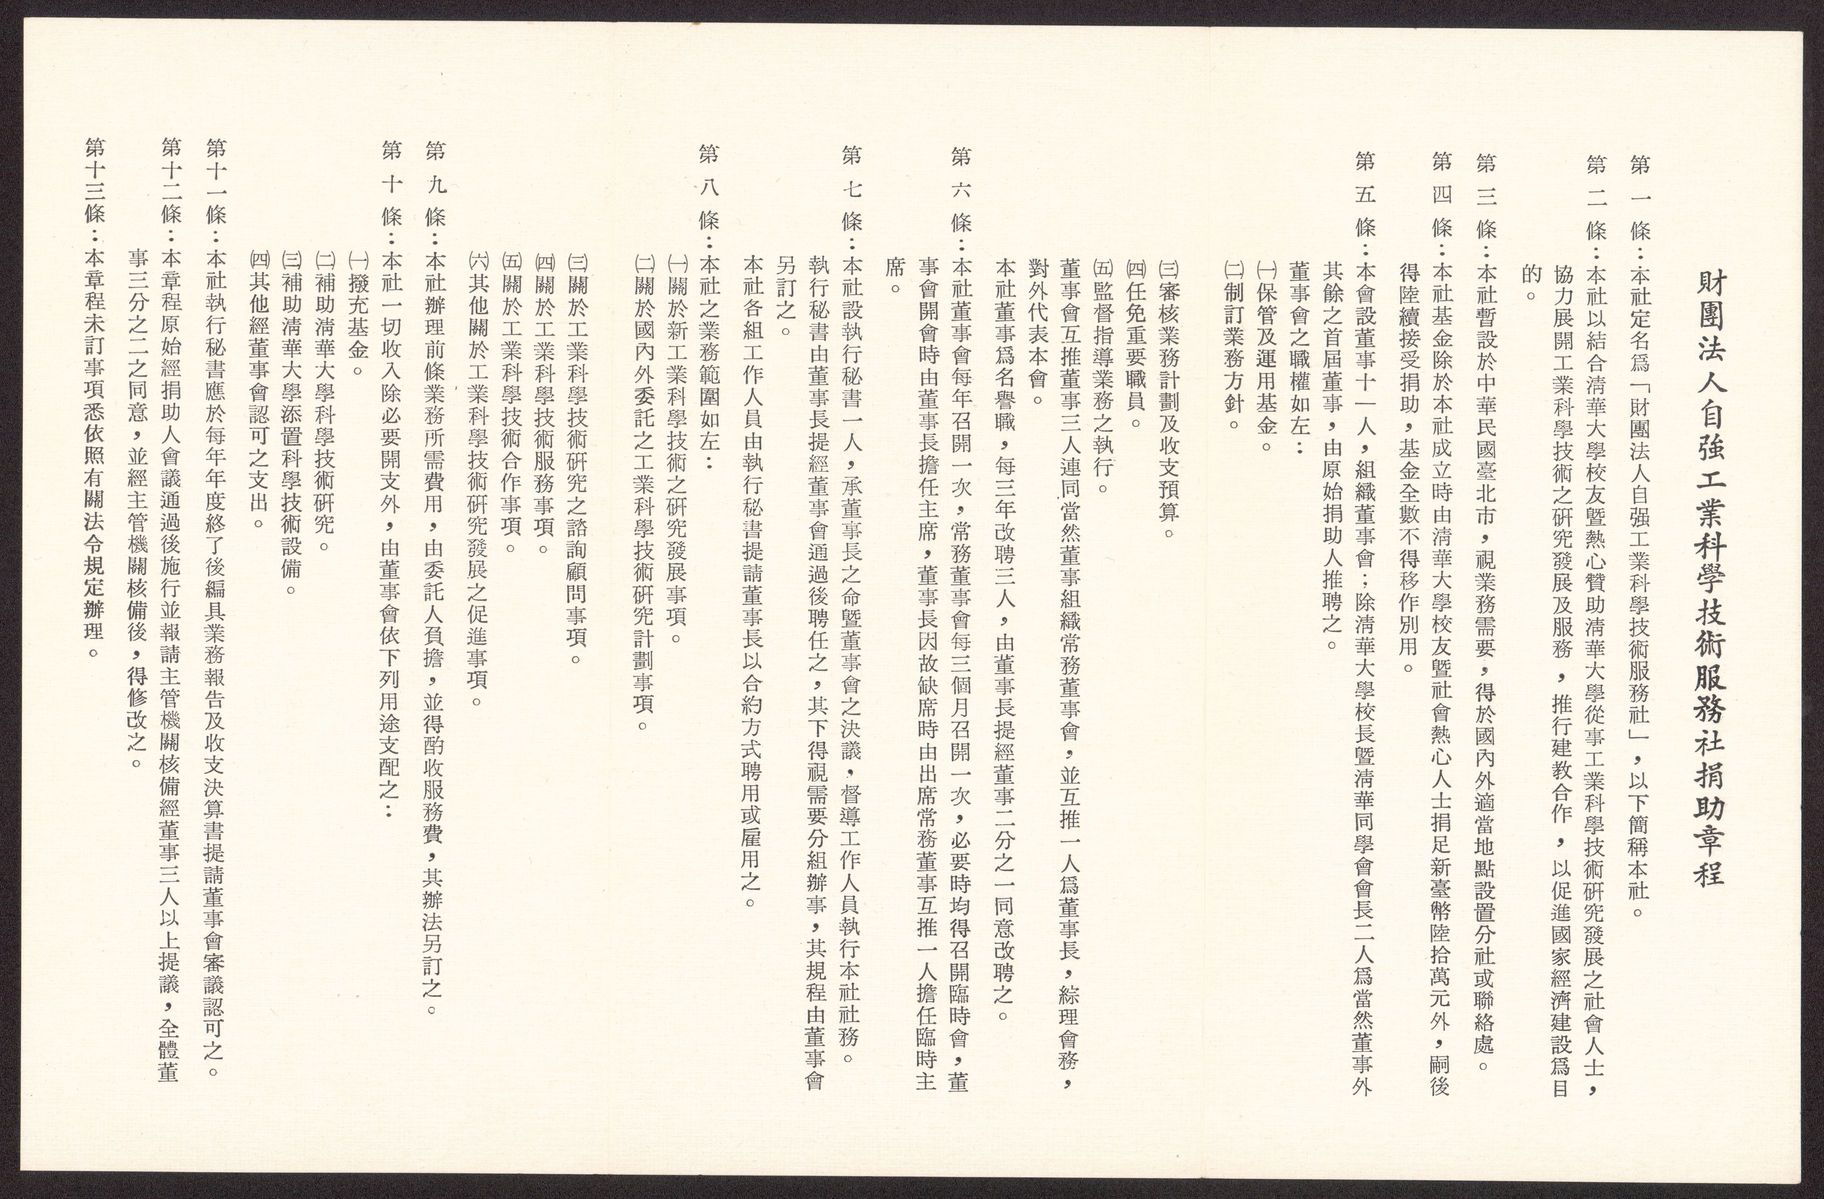 財團法人自強工業科學技術服務社捐助章程
第一條：本社定名爲「財團法人自强工業科學技術服務社」，以下簡稱本社。
第二條：本社以結合淸華大學校友曁熱心贊助淸華大學從事工業科學技術硏究發展之社會人士，
協力展開工業科學技術之硏究發展及服務，推行建教合作，以促進國家經濟建設爲目
的。
第三條：本社暫設於中華民國臺北市，視業務需要，得於國內外適當地點設置分社或聯絡處。
第四條：本社基金除於本社成立時由淸華大學校友曁社會熱心人士捐足新臺幣陸拾萬元外，嗣後
得陸續接受捐助，基金全數不得移作別用。
第五條：本會設董事十一人，組織董事會；除淸華大學校長曁淸華同學會會長二人爲當然董事外
其餘之首屆董事，由原始捐助人推聘之。
董事會之職權如左：
㈠保管及運用基金。
㈡制訂業務方針。
㈢審核業務計劃及收支預算。
㈣任免重要職員。
㈤監督指導業務之執行。
董事會互推董事三人連同當然董事組織常務董事會，並互推一人爲董事長，綜理會務，
對外代表本會。
本社董事爲名譽職，每三年改聘三人，由董事長提經董事二分之一同意改聘之。
第六條：本社董事會每年召開一次，常務董事會每三個月召開一次，必要時均得召開臨時會，董
事會開會時由董事長擔任主席，董事長因故缺席時由出席常務董事互推一人擔任臨時主
席。
第七條：本社設執行秘書一人，承董事長之命曁董事會之決議，督導工作人員執行本社社務。
執行秘書由董事長提經董事會通過後聘任之，其下得視需要分組辦事，其規程由董事會
另訂之。
本社各組工作人員由執行秘書提請董事長以合約方式聘用或雇用之。
第八條：本社之業務範圍如左：
㈠關於新工業科學技術之硏究發展事項。
㈡關於國內外委託之工業科學技術硏究計劃事項。
㈢關於工業科學技術硏究之諮詢顧問事項。
㈣關於工業科學技術服務事項。
㈤關於工業科學技術合作事項。
㈥其他關於工業科學技術硏究發展之促進事項。
第九條：本社辦理前條業務所需費用，由委託人負擔，並得酌收服務費，其辦法另訂之。
第十條：本社一切收入除必要開支外，由董事會依下列用途支配之：
㈠撥充基金。
㈡補助淸華大學科學技術硏究。
㈢補助淸華大學添置科學技術設備。
㈣其他經董事會認可之支出。
第十一條：本社執行秘書應於每年年度終了後編具業務報告及收支決算書提請董事會審議認可之。
第十二條：本章程原始經捐助人會議通過後施行並報請主管機關核備經董事三人以上提議，全體董
事三分之二之同意，並經主管機關核備後，得修改之。
第十三條：本章程未訂事項悉依照有關法令規定辦理。